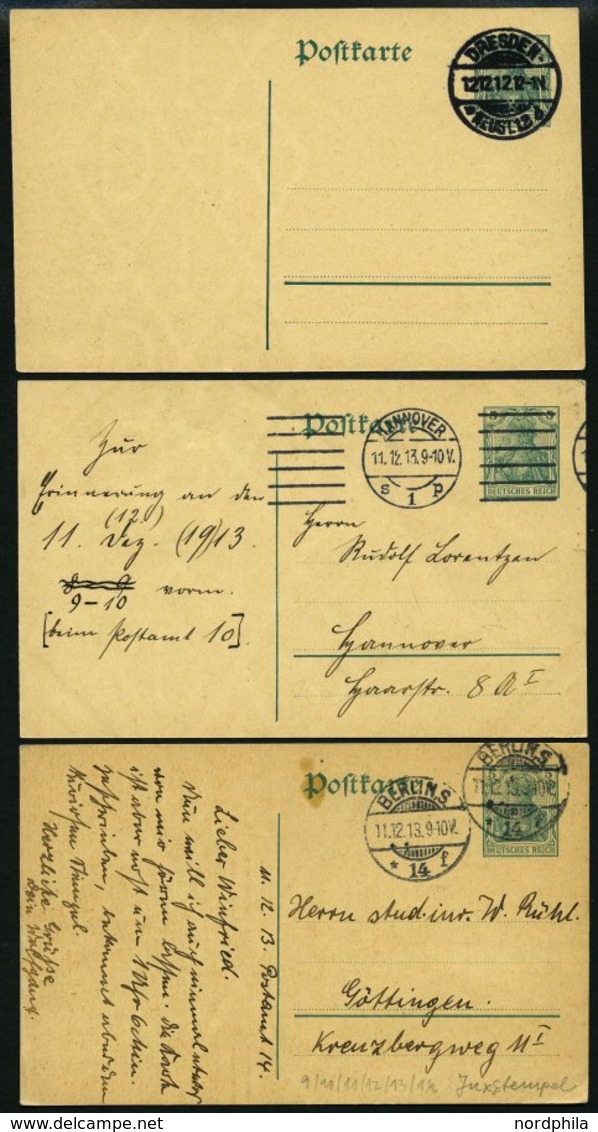 Postkarte
DRESDEN-
12.12.12.12-1N
*NEUST.12d.
Postkarte
HANNOVER
11.12.13.9-10V.
S 1 P
DEUTSCHES REICH
Zur
Erinnerung an den
(12.)
11. Dez. (19)13.
8-9
9-10 vorm.
[beim Postamt 10].
Herrn
Rudolf Lorentzen
Hannover
Haarstr. 8 A I
Postkarte
BERLIN.S
11.12.13.9-10V.
* 14 f
BERLIN.S
11.12.13.9-10V.
* 14 f
DEUTSCHES REICH
11. 12. 13 Postamt 14.
Lieber Winfried.
Nun will ich auch einmal
von mir hören lassen. Die Karte
ist aber erst um
geschrieben, bekommt aber den
kuriosen Stempel.
Herzliche Grüße
Dein Wolfgang.
Herrn stud. iur. W. Rühl.
Göttingen.
Kreuzbergweg 11 I
9/10/11/12/13/14 Juxstempel
www.delcampe.net
nordphila